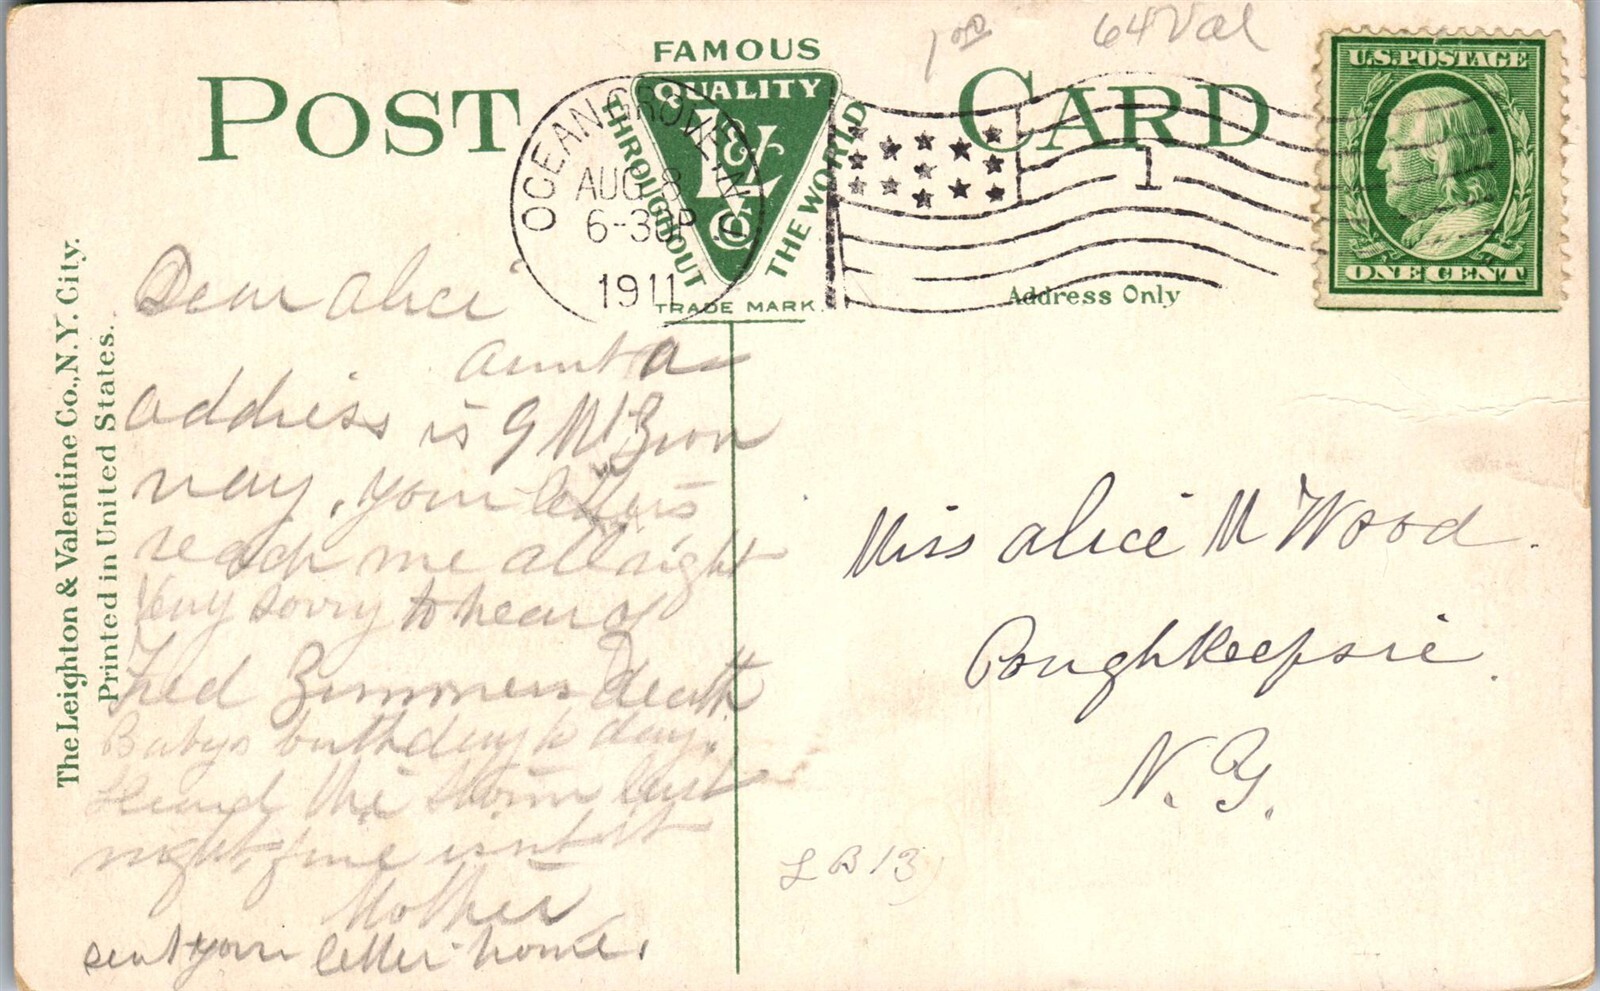 1 00
64 Val
FAMOUS
QUALITY
L & V Co
THROUGHOUT THE WORLD
TRADE MARK
POST CARD
OCEAN GROVE, N.J.
AUG 8
6-30P
1911
1
U.S. POSTAGE
ONE CENT
Address Only
The Leighton & Valentine Co., N.Y. City.
Printed in United States.
Dear Alice
aunt a
address is 9 Mt Zion
way, your letters
reach me all right
Very sorry to hear of
Fred Zimmers Death
Babys birthday to day.
the storm last
night, fine isnt it
Mother
sent your letter home.
Miss Alice M Wood.
Poughkeepsie.
N.Y.
LB13